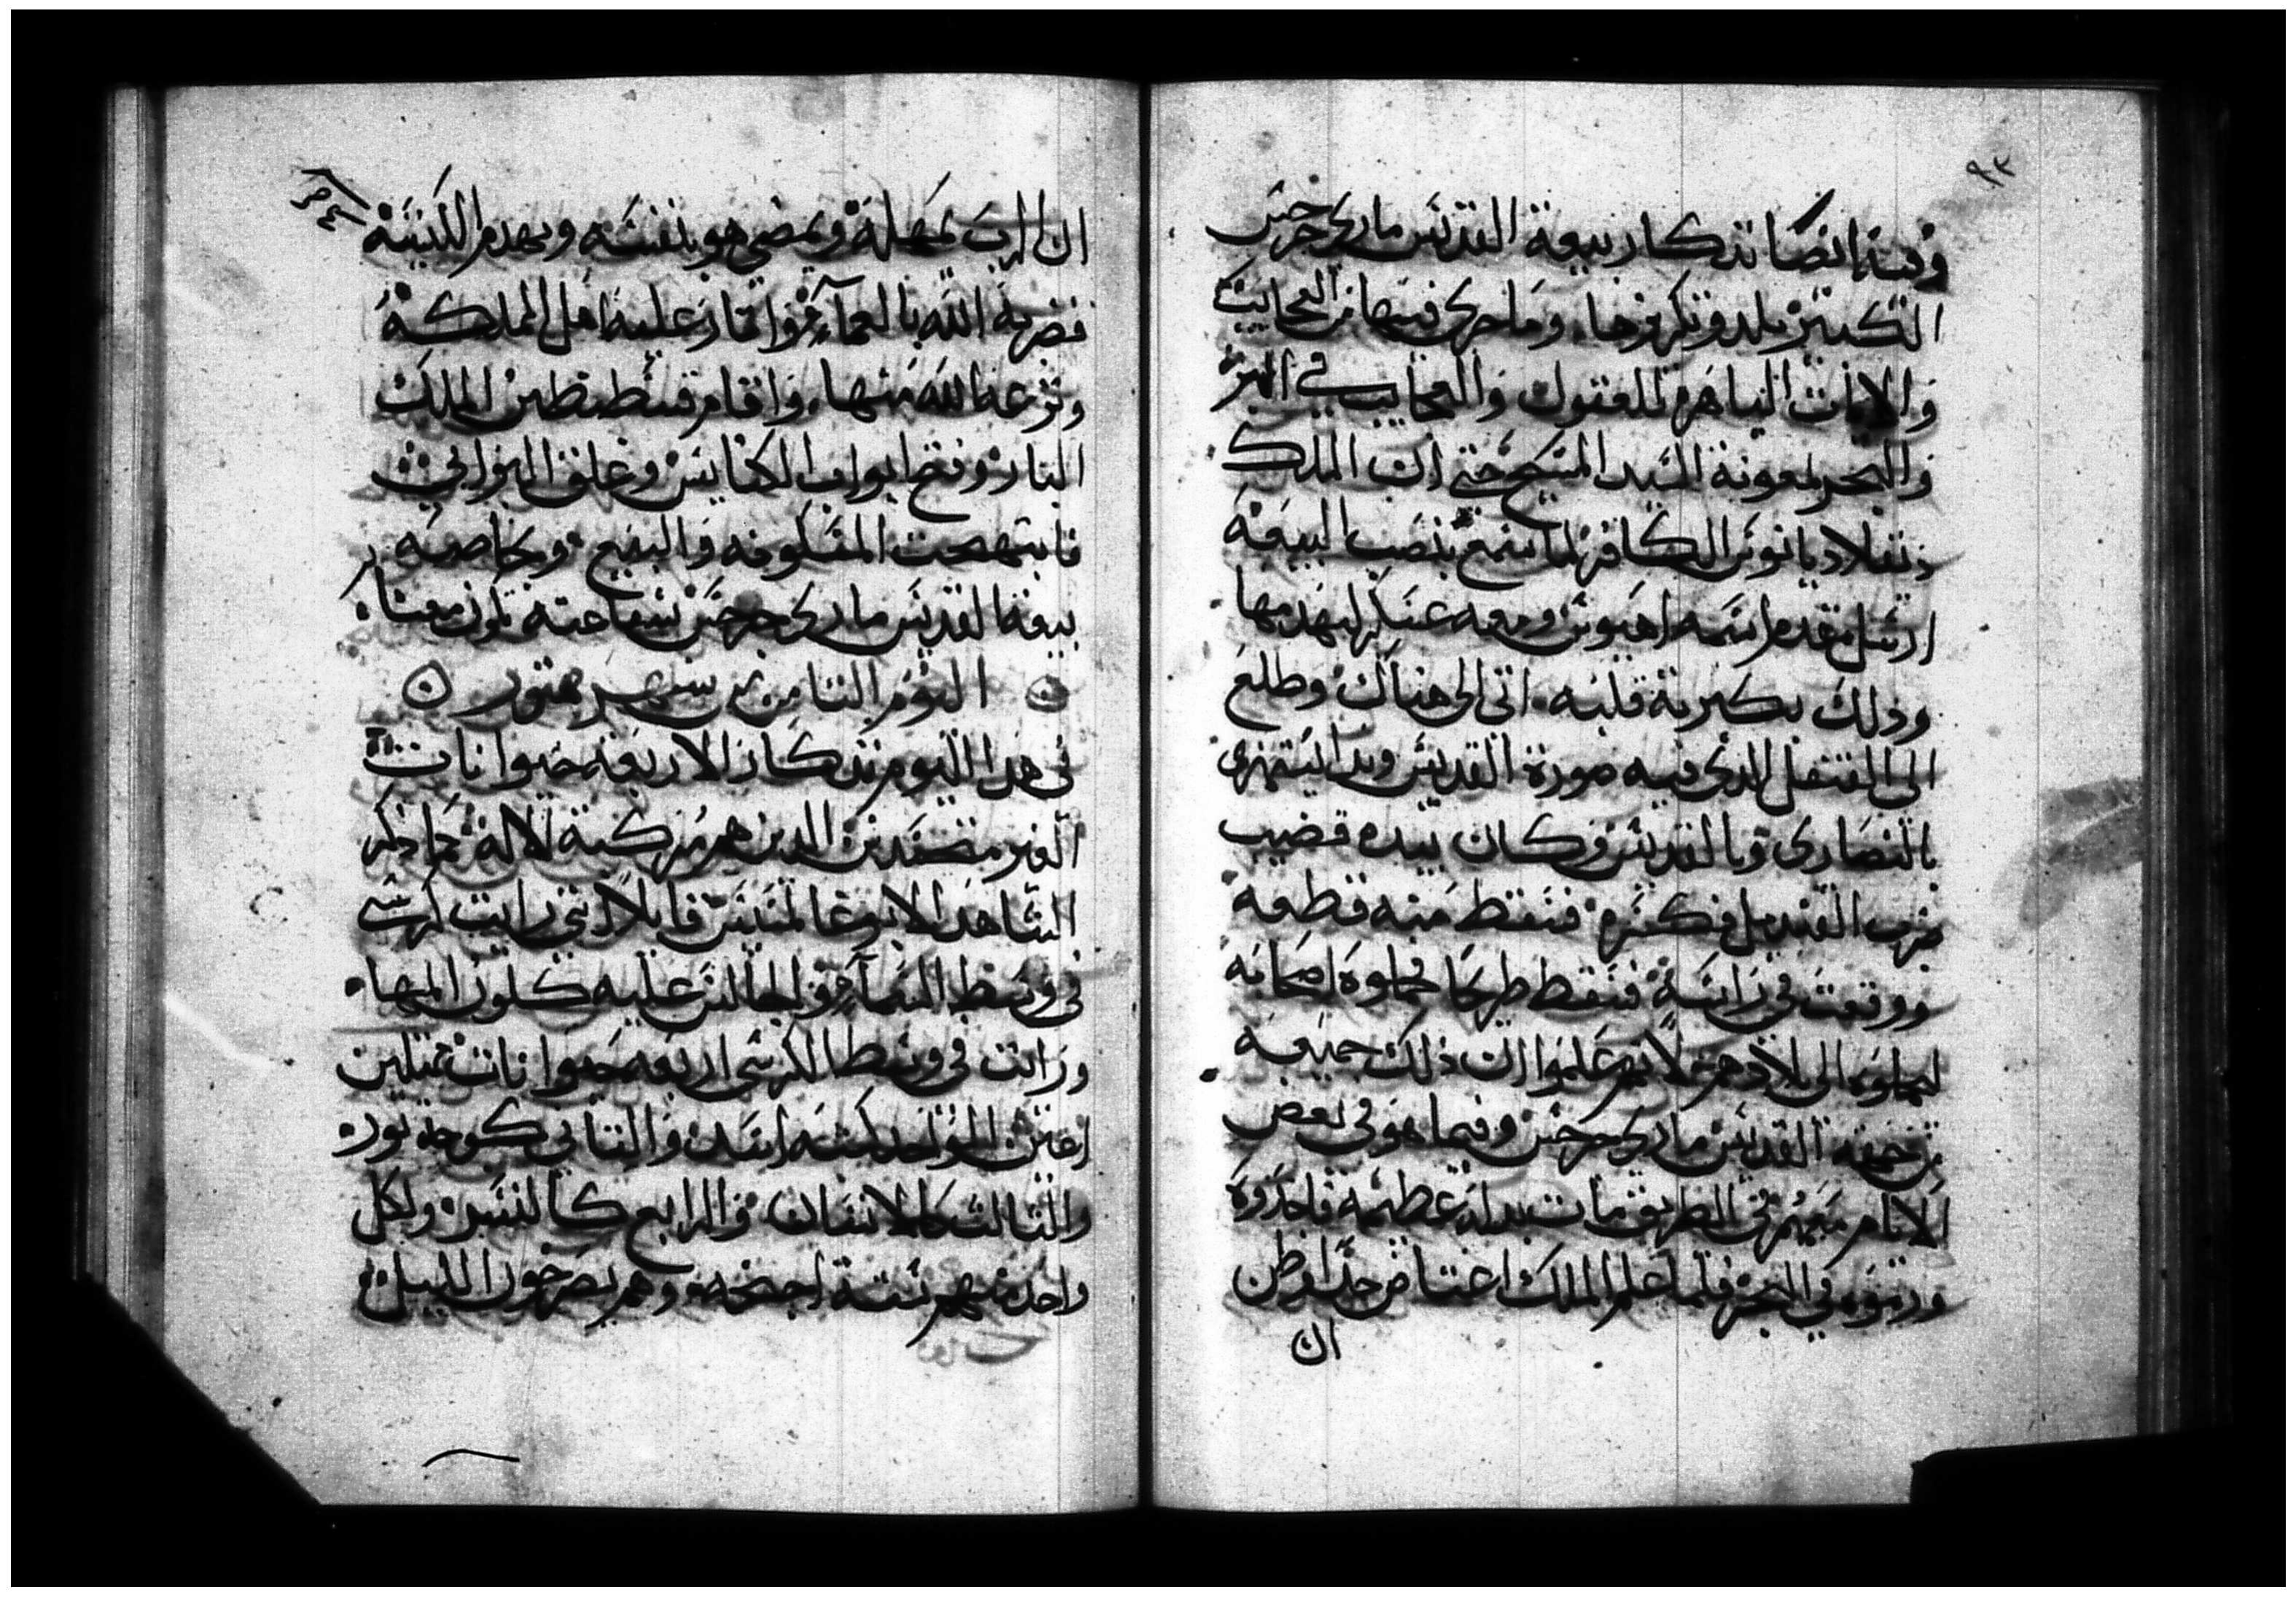 ٩٣
وفيه ايضا تذكار بيعة القديس ماري جرجس
الكبير ببلده وتكريزها. وما جري فيها من العجايب
والايات الباهرة للعقول والعجايب في البر
والبحر بمعونة السيد المسيح حتى ان الملك
دقلاديانوس الكافر لما سمع بنصب البيعة
ارسل مقدم اسمه اهيوس ومعه عسكر ليهدمها
وذلك بكبرية قلبه. اتي الى هناك وطلع
الى القنقل الذي فيه صورة القديس وبدا ليستهزى
بالنصاري وبالقديس وكان بيده قضيب
ضرب القنديل فكسره فسقط منه قطعة
ووقعت في راسه فسقط طريحا فحملوه اصحابه
ليحملوه الى بلادهم لانهم علموا ان ذلك جميعه
من نقمة القديس ماري جرجس وفيما هو في بعض
الايام معهم في الطريق مات ببدلة عظيمه فاخذوه
ورموه في البحر فلما علم الملك اغتاض جدا وظن
ان
٩٤
ان الرب يمهله ويمضي هو بنفسه ويهدم الكنيسه
فضربه الله بالعما. وثار عليه اهل المملكة
ونزعه الله منها. واقام قسطنطين الملك
البار وفتح ابواب الكنايس وغلق البرابي
فابتهجت المسكونه والبيع وبخاصه
بيعة القديس ماري جرجس شفاعته تكون معنا.
اليوم الثامن من شهر هتور
في هذا اليوم تذكار الاربعه حيوانات
الغير متجسدين الذين هم مركبة الاله كما ذكر
الشاهد الابوغالمسيس قايلا اني رايت كرسي
في وسط السما والجالس عليه كلون المها.
ورايت في وسط الكرسي اربعه حيوانات ممتلين
اعين الواحد كشبه اسد والثاني كوجه ثور.
والثالث كالانسان والرابع كالنسر ولكل
واحد منهم ستة اجنحه. وهم يصرخون الليل